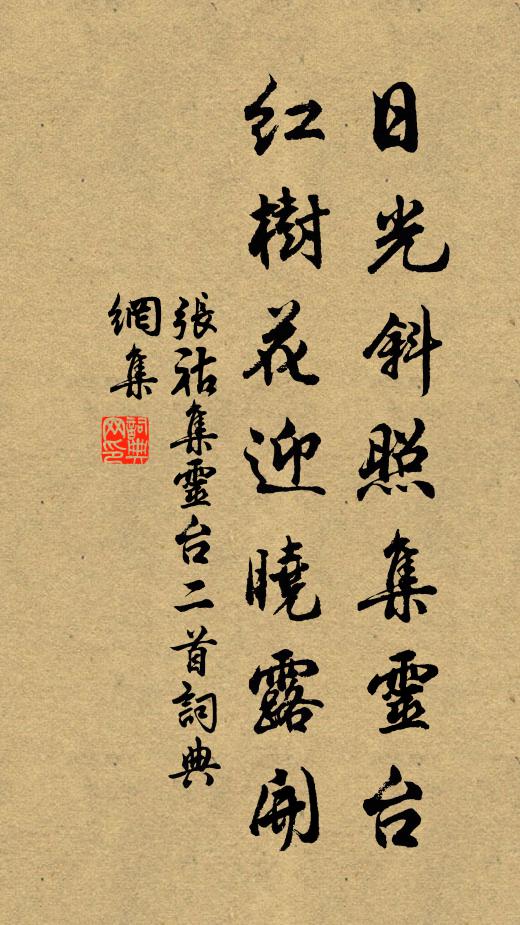 日光斜照集靈台
紅樹花迎曉露開
張祜集靈台二首詞典
網集
詞典
网印